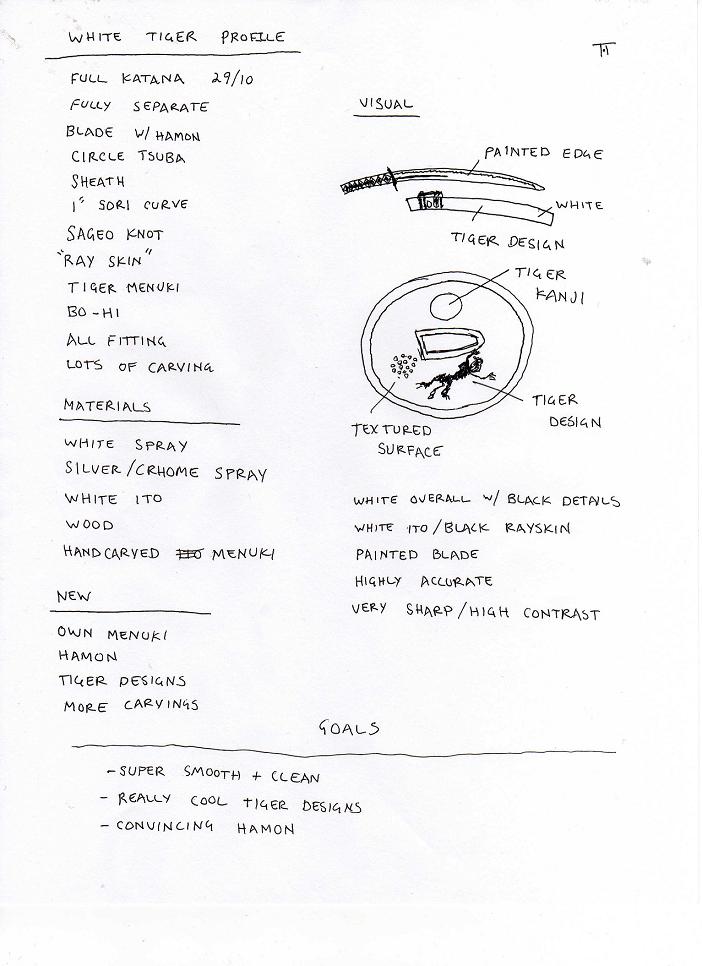 WHITE TIGER PROFILE
FULL KATANA 29/10
FULLY SEPARATE
BLADE W/ HAMON
CIRCLE TSUBA
SHEATH
1" SORI CURVE
SAGEO KNOT
"RAY SKIN"
TIGER MENUKI
BO-HI
ALL FITTING
LOTS OF CARVING
MATERIALS
WHITE SPRAY
SILVER/CRHOME SPRAY
WHITE ITO
WOOD
HANDCARVED MENUKI
NEW
OWN MENUKI
HAMON
TIGER DESIGNS
MORE CARVINGS
VISUAL
PAINTED EDGE
WHITE
TIGER DESIGN
TIGER
KANJI
TIGER
DESIGN
TEXTURED
SURFACE
WHITE OVERALL W/ BLACK DETAILS
WHITE ITO/BLACK RAYSKIN
PAINTED BLADE
HIGHLY ACCURATE
VERY SHARP/HIGH CONTRAST
GOALS
- SUPER SMOOTH + CLEAN
- REALLY COOL TIGER DESIGNS
- CONVINCING HAMON